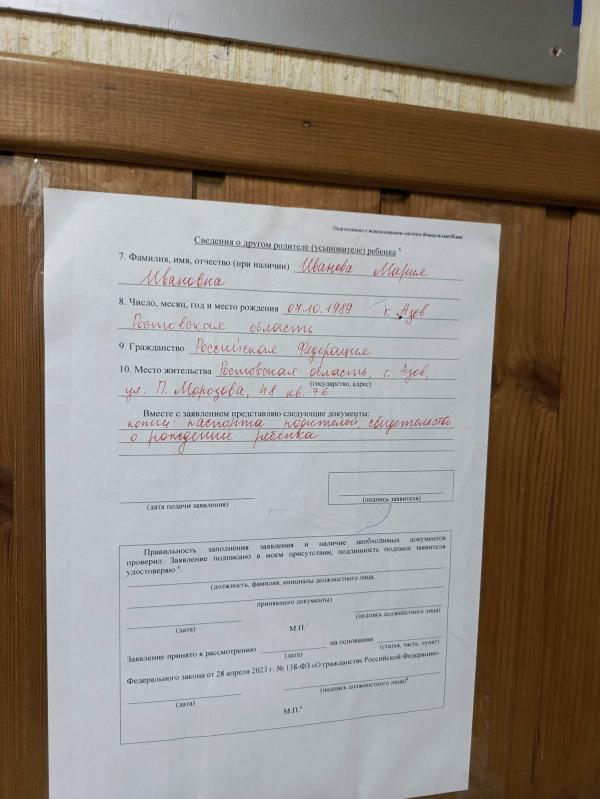 Подготовлено с использованием системы КонсультантПлюс
Сведения о другом родителе (усыновителе) ребенка 5
7. Фамилия, имя, отчество (при наличии) Иванова Мария
Ивановна
8. Число, месяц, год и место рождения 07.10.1989 г. Азов
Ростовская область
9. Гражданство Российская Федерация
10. Место жительства Ростовская область, г. Азов,
(государство, адрес)
ул. П. Морозова, 48 кв. 76
Вместе с заявлением представляю следующие документы:
копии: паспорта родителей, свидетельство
о рождении ребенка
(дата подачи заявления) (подпись заявителя)
Правильность заполнения заявления и наличие необходимых документов
проверил. Заявление подписано в моем присутствии, подлинность подписи заявителя
удостоверяю 6.
(должность, фамилия, инициалы должностного лица,
принявшего документы)
(подпись должностного лица)
(дата) М.П.7
Заявление принято к рассмотрению на основании
(дата) (статья, часть, пункт)
Федерального закона от 28 апреля 2023 г. № 138-ФЗ «О гражданстве Российской Федерации»
(подпись должностного лица)8
(дата)
М.П.9